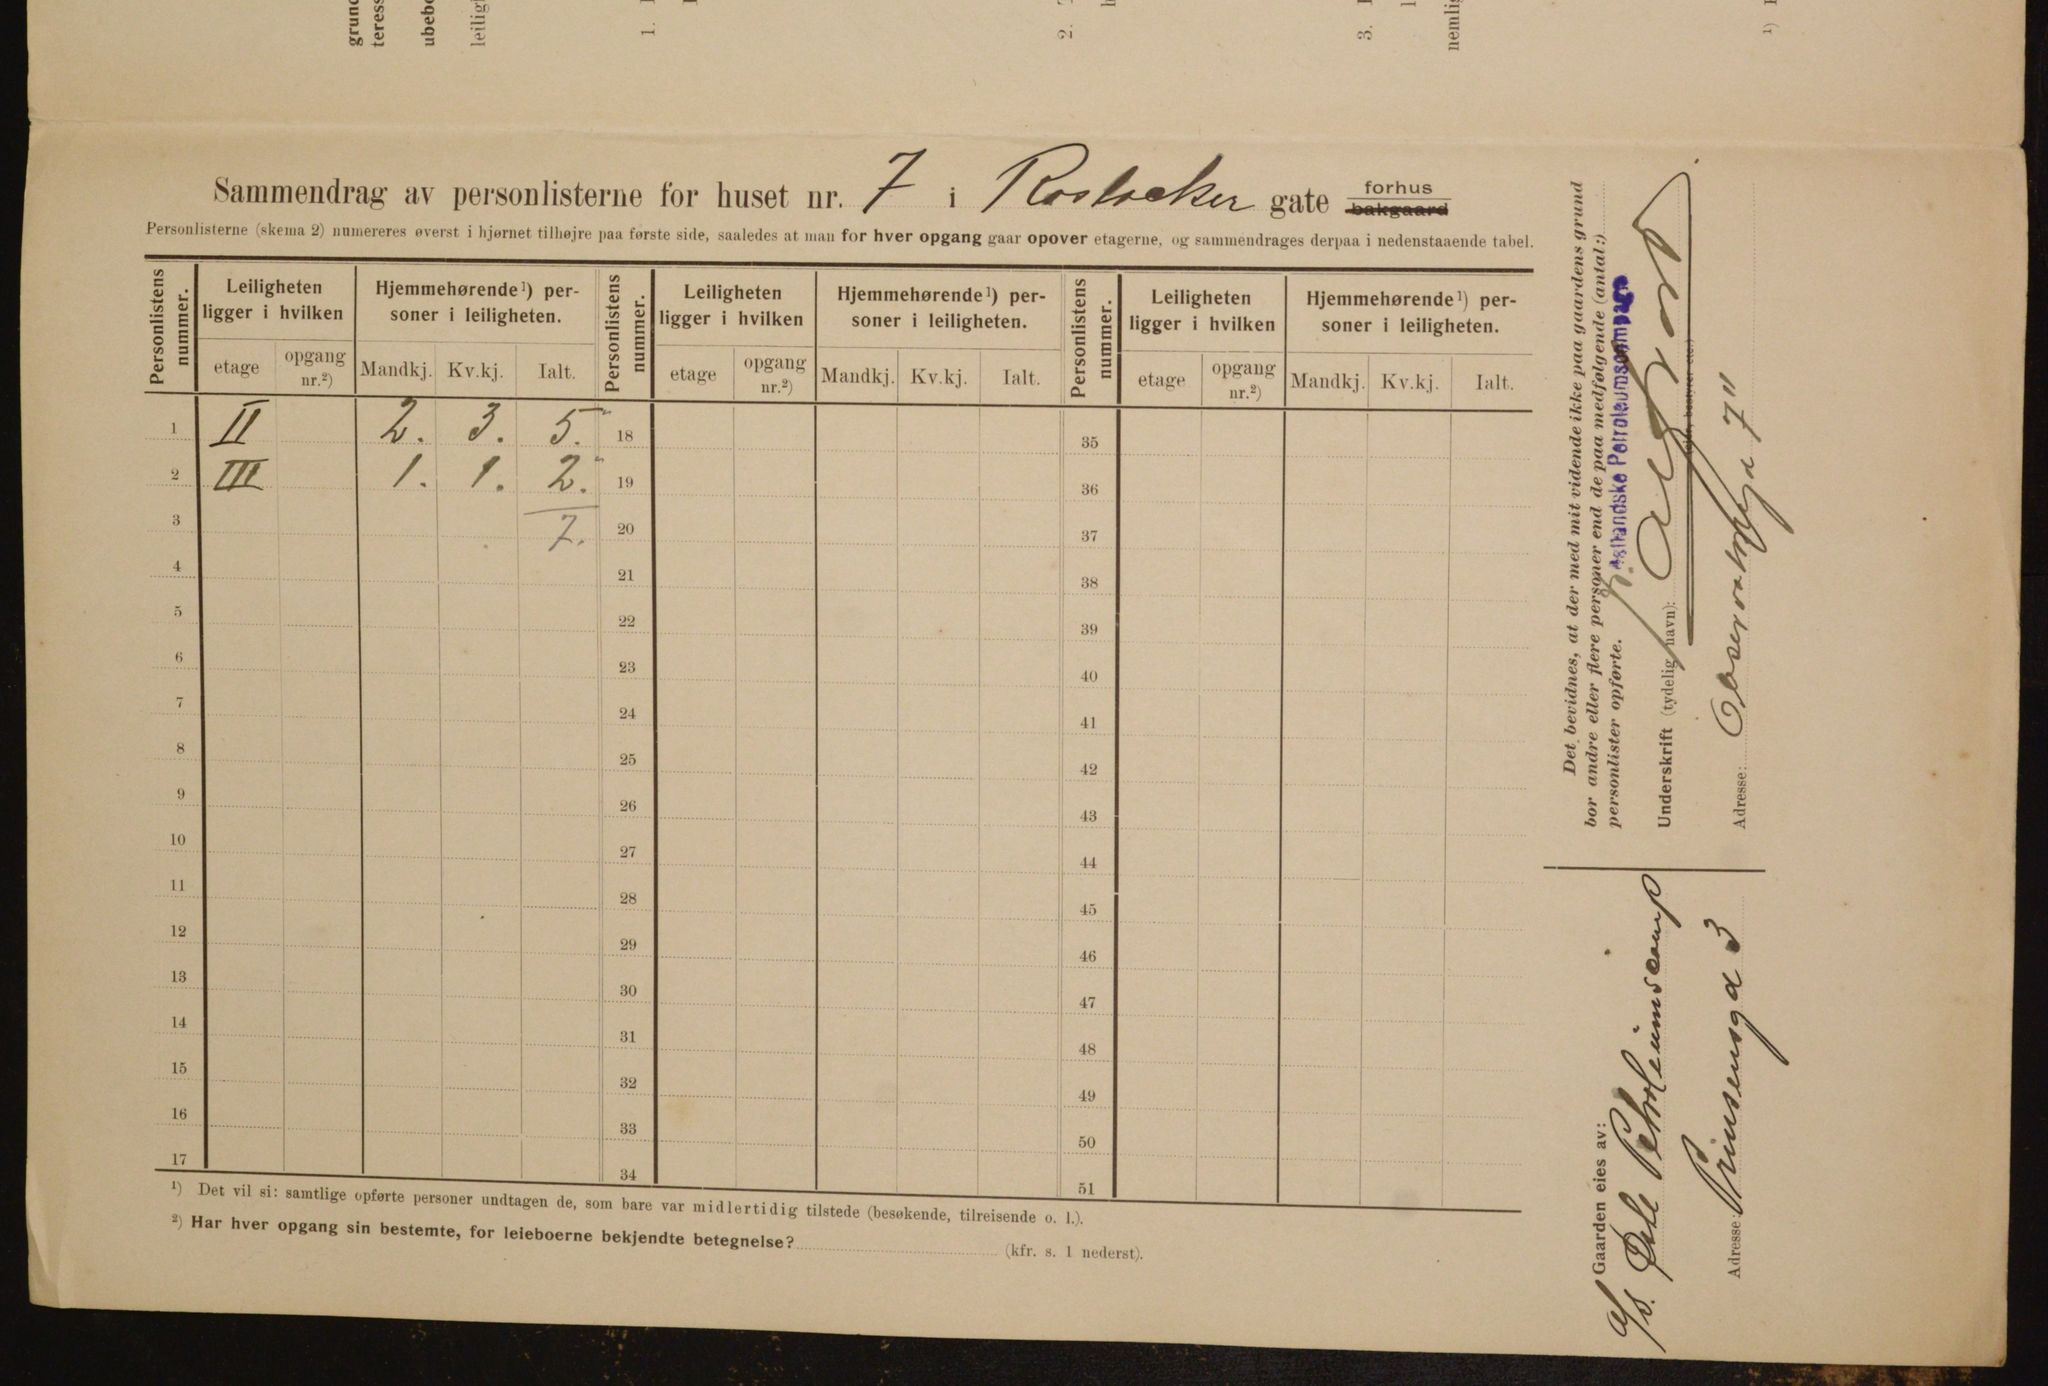 grund
teress
ubebo
leiligh
1.
2.
3.
nemlig
1)
Sammendrag av personlisterne for huset nr. 7 i Rostocker gate forhus bakgaard
Personlisterne (skema 2) numereres øverst i hjørnet tilhøjre paa første side, saaledes at man for hver opgang gaar opover etagerne, og sammendrages derpaa i nedenstaaende tabel.
Personlistens nummer. Leiligheten ligger i hvilken Hjemmehørende 1) personer i leiligheten. Personlistens nummer. Leiligheten ligger i hvilken Hjemmehørende 1) personer i leiligheten. Personlistens nummer. Leiligheten ligger i hvilken Hjemmehørende 1) personer i leiligheten.
etage opgang nr.2) Mandkj. Kv.kj. Ialt. etage opgang nr.2) Mandkj. Kv.kj. Ialt. etage opgang nr.2) Mandkj. Kv.kj. Ialt.
1 II 2. 3. 5. 18 35
2 III 1. 1. 2. 19 36
3 7. 20 37
4 21 38
5 22 39
6 23 40
7 24 41
8 25 42
9 26 43
10 27 44
11 28 45
12 29 46
13 30 47
14 31 48
15 32 49
16 33 50
17 34 51
1) Det vil si: samtlige opførte personer undtagen de, som bare var midlertidig tilstede (besøkende, tilreisende o. l.).
2) Har hver opgang sin bestemte, for leieboerne bekjendte betegnelse? (kfr. s. 1 nederst).
Det bevidnes, at der med mit vidende ikke paa gaardens grund
bor andre eller flere personer end de paa medfølgende (antal:)
personlister opførte.
Østlandske Petroleumscompagni
Underskrift (tydelig navn):
(eier, bestyrer etc.)
Adresse: Observatoriegd 7"
Gaarden eies av:
A/S. Østl Petroleumscomp
Adresse: Prinsensgd 3